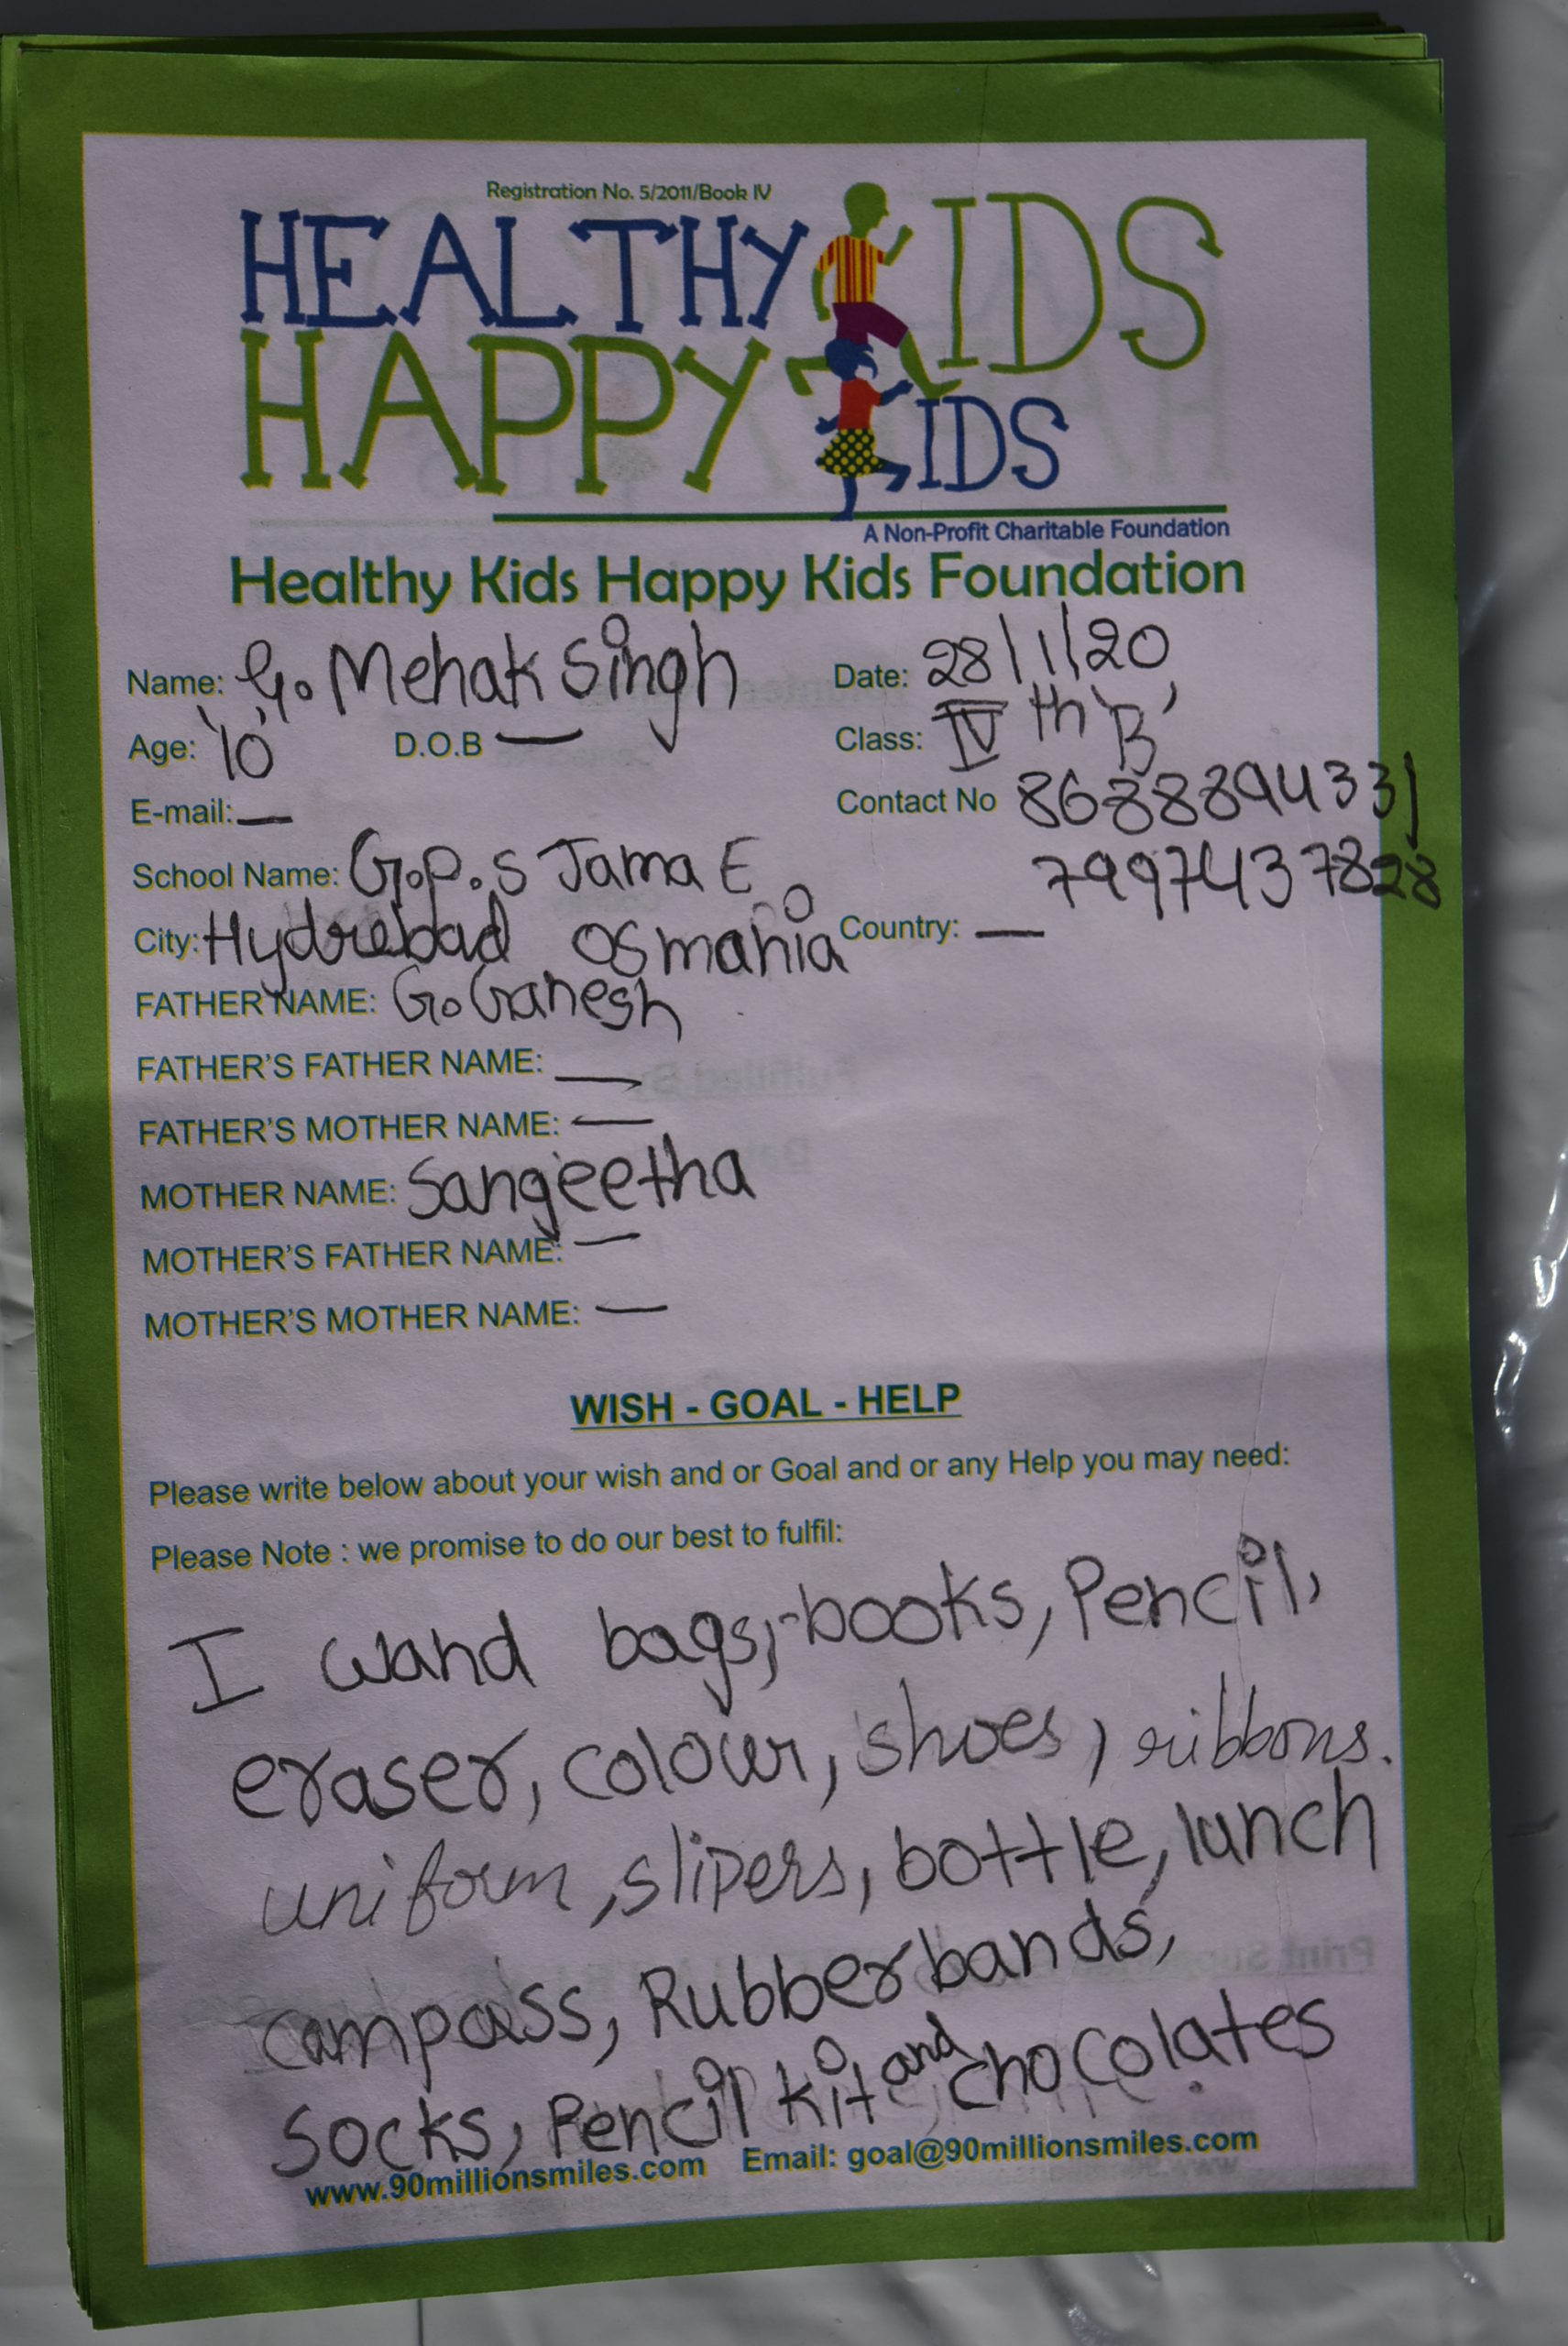 Registration No. 5/2011/Book IV
HEALTHY KIDS
HAPPY KIDS
A Non-Profit Charitable Foundation
Healthy Kids Happy Kids Foundation
Name: G. Mehak Singh Date: 28/1/20
Age: '10' D.O.B — Class: IV th 'B'
E-mail: — Contact No 8688894331
School Name: G.P.S Jama E 7997437828
City: Hydrebad Osmania Country: —
FATHER NAME: G. Ganesh
FATHER'S FATHER NAME: —
FATHER'S MOTHER NAME: —
MOTHER NAME: Sangeetha
MOTHER'S FATHER NAME: —
MOTHER'S MOTHER NAME: —
WISH - GOAL - HELP
Please write below about your wish and or Goal and or any Help you may need:
Please Note : we promise to do our best to fulfil:
I wand bags, books, Pencil,
eraser, colour, shoes, ribbons.
uniform, slipers, bottle, lunch
compass, Rubber bands,
Socks, Pencil kit and chocolates
www.90millionsmiles.com Email: goal@90millionsmiles.com